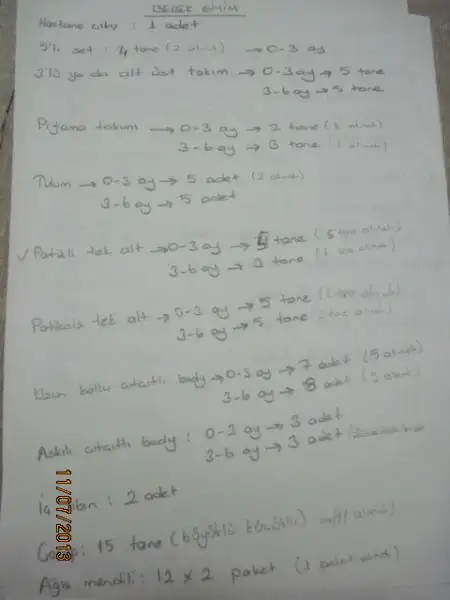 BEBEK GİYİM
Hastane çıkışı : 1 adet
5'li set : 4 tane (2 alındı) → 0-3 ay
3'lü ya da alt üst takım → 0-3 ay → 5 tane
3-6 ay → 5 tane
Pijama takımı → 0-3 ay → 2 tane (1 alındı)
3-6 ay → 3 tane (1 alındı)
Tulum → 0-3 ay → 5 adet (2 alındı)
3-6 ay → 5 adet
✓ Patikli tek alt → 0-3 ay → 5 tane (5 tane alındı)
3-6 ay → 3 tane (1 tane alındı)
Patiksiz tek alt → 0-3 ay → 5 tane (2 tane alındı)
3-6 ay → 5 tane (2 tane alındı)
Uzun kollu çıtçıtlı body → 0-3 ay → 7 adet (5 alındı)
3-6 ay → 8 adet (3 alındı)
Askılı çıtçıtlı body : 0-3 ay → 3 adet
3-6 ay → 3 adet
İç zıbın : 2 adet
: 15 tane (büyüklü küçüklü) alındı)
Ağız mendili : 12 x 2 paket (1 paket alındı)
11/07/2013